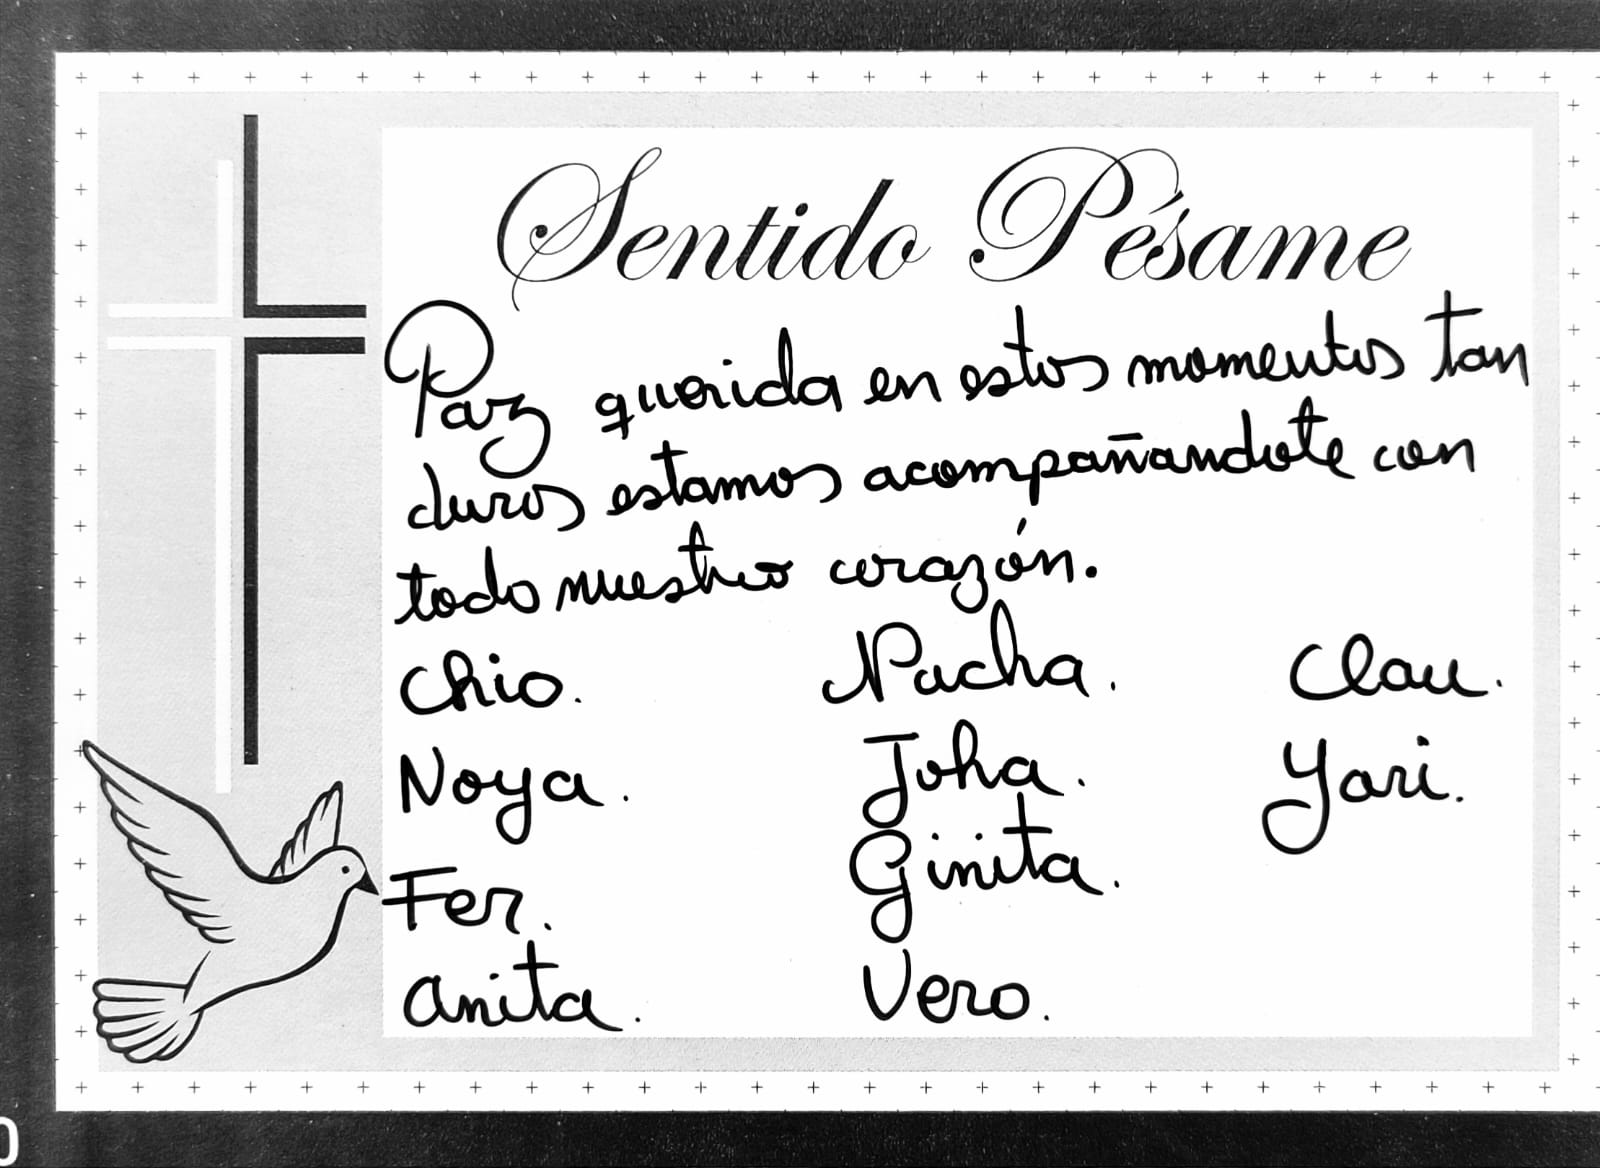 Sentido Pésame
Paz querida en estos momentos tan
duros estamos acompañandote con
todo nuestro corazón.
Chio. Nacha. Clau.
Noya. Joha. Yari.
Fer. Ginita.
Anita. Vero.